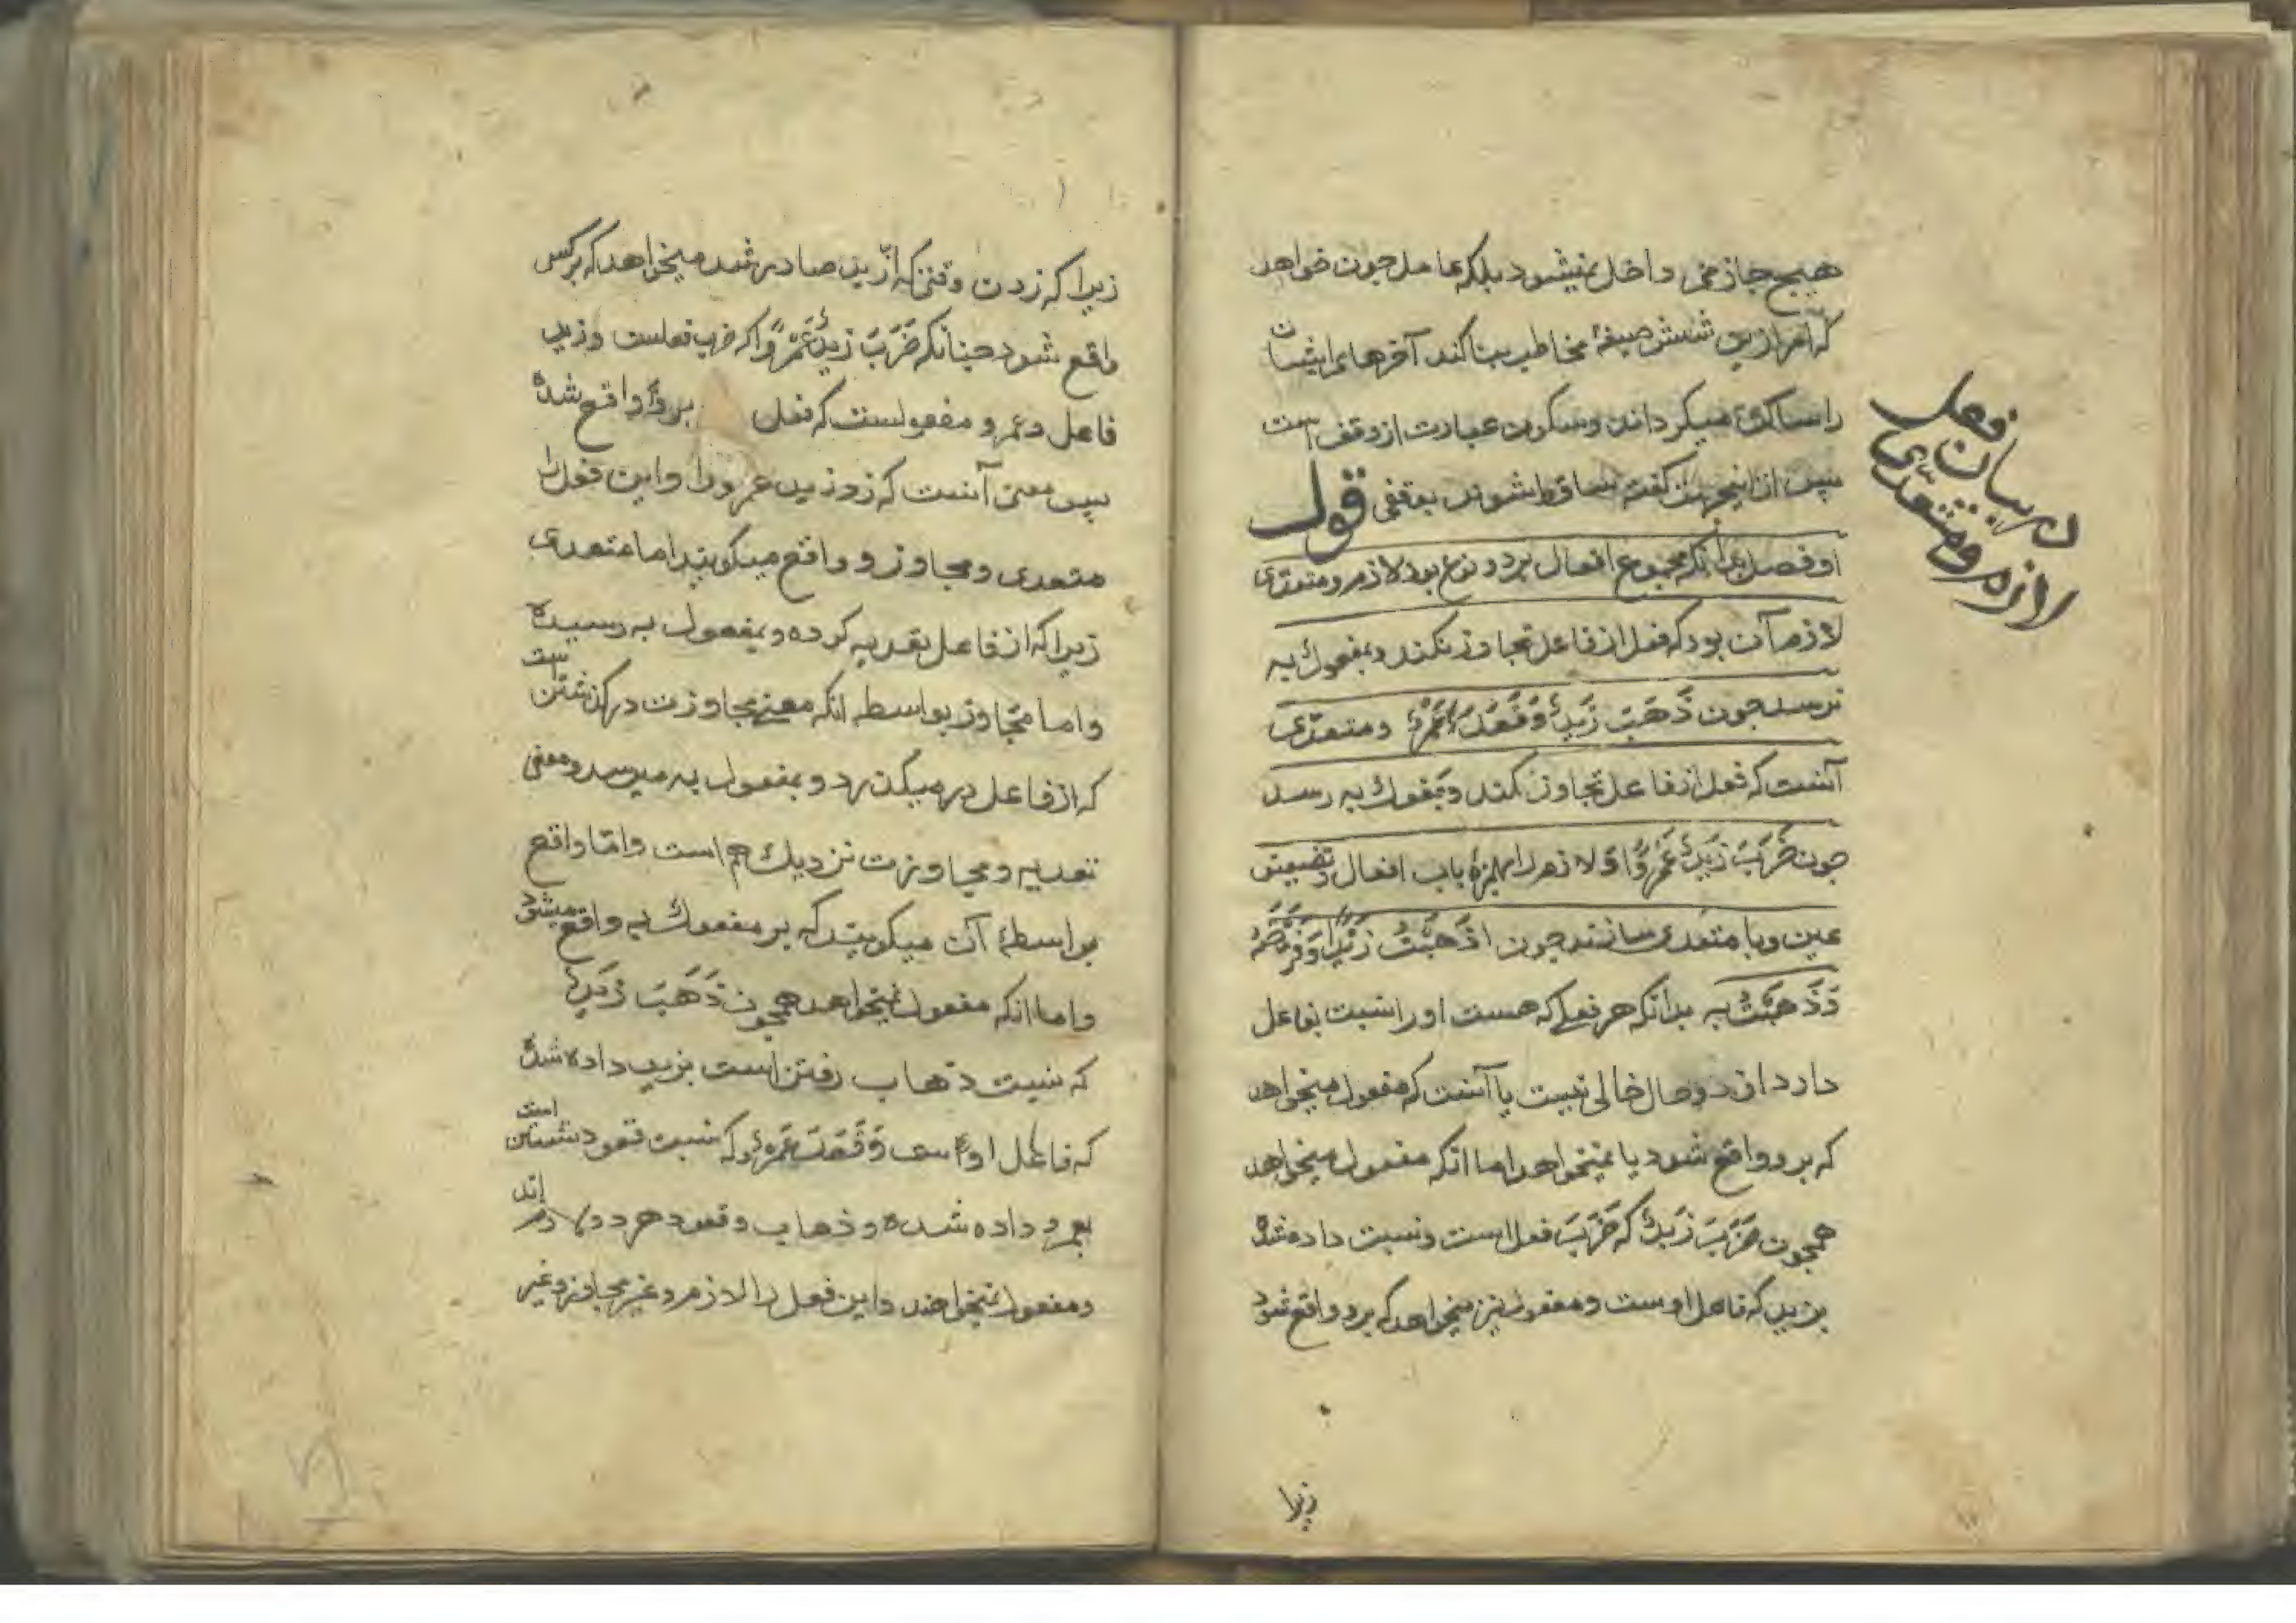 هیچ جازمی داخل نمیشود بلکه عامل چون خواهد
که امر ازین شش صیغهٔ مخاطب بنا کند آخرهای ایشان
را ساکن میکرداند وسکون عبارت از وقف است
پس از اینجهت کفته ساقط شوند بوقفی قول
او فصل بدانکه مجموع افعال بردو نوع بود لازم ومتعدّی
لازم آن بود که فعل از فاعل تجاوز نکند وبمفعول به
نرسد چون ذَهَبَ زَیدٌ وَقَعَدَ عَمْرٌو ومتعدّی
آنست که فعل از فاعل تجاوز کند وبمفعول به رسد
چون ضَرَبَ زَیدٌ عَمْرًوا ولازم را بهمزهٔ باب افعال وتضعیف
عین وبا متعدی سازند چون اَذْهَبْتُ زَیْدًا وَفَرَّحْتُهُ
وَذَهَبْتُ به بدانکه هر فعلی که هست اورا نسبت بفاعل
دارد از دو حال خالی نیست یا آنست که مفعول میخواهد
که برو واقع شود یا نمیخواهد اما انکه مفعول میخواهد
همچون ضَرَبَ زَیدٌ که ضَرَبَ فعل است ونسبت داده شدهٔ
بزید که فاعل اوست ومفعول نیز میخواهد که برو واقع شود
زیرا
در بیان فعل
لازم ومتعدّی
زیرا که زدن وقتی که از زید صادر شد میخواهد که برکسی
واقع شود چنانکه ضَرَبَ زَیدٌ عَمْرًوا که ضرب فعلست وزید
فاعل وعمرو مفعولست که فعل برو واقع شده
پس معنی آنست که زد زید عمرورا واین فعل را
متعدی ومجاوز و واقع میکویند اما متعدی
زیرا که از فاعل تعدیه کرده وبمفعول به رسیده
است
واما مجاوز بواسطه انکه معنی مجاوزت درکذشتن
که از فاعل درمیکذرد وبمفعول به میرسد ومعنی
تعدیه ومجاوزت نزدیك هم است وامّا واقع
بواسطهٔ آن میکویند که بر مفعول به واقع میشود
واما انکه مفعول نمیخواهد همچون ذَهَبَ زَیدٌ
که نسبت ذهاب رفتن است بزید داده شدهٔ
که فاعل اوست وَقَعَدَ عَمْرٌو که نسبت قعود نشستن
است
بعمرو داده شده وذهاب وقعود هر دو لازم
اند
ومفعول نمیخواهند واین فعل را لازم وغیر مجاوز وغیر